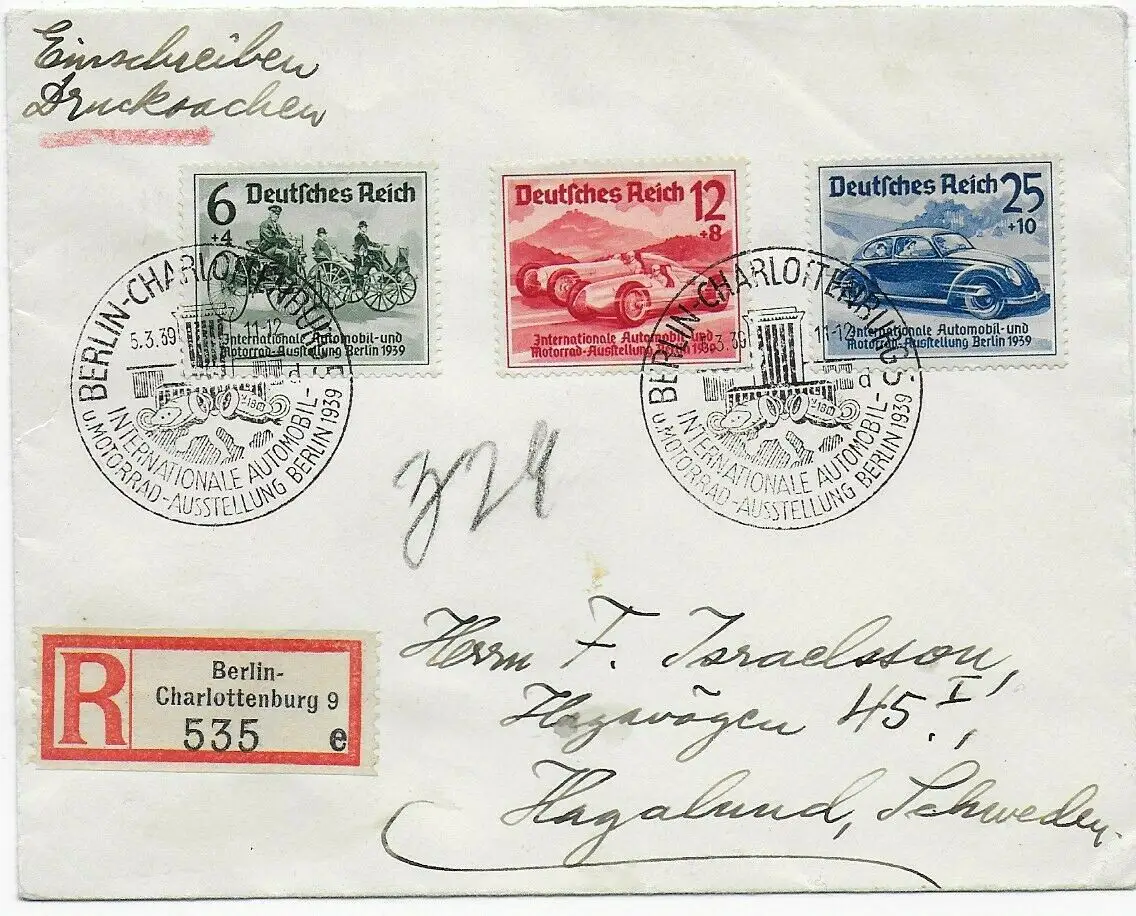 Einschreiben
Drucksachen
6 Deutsches Reich
+4
Internationale Automobil-und
Motorrad-Ausstellung Berlin 1939
Deutsches Reich 12
+8
Internationale Automobil-und
Motorrad-Ausstellung Berlin 1939
Deutsches Reich 25
+10
Internationale Automobil-und
Motorrad-Ausstellung Berlin 1939
BERLIN-CHARLOTTENBURG 5
5.3.39 11-12
d
INTERNATIONALE AUTOMOBIL-
U.MOTORRAD-AUSSTELLUNG BERLIN 1939
BERLIN-CHARLOTTENBURG 5
5.3.39 11-12
d
INTERNATIONALE AUTOMOBIL-
U.MOTORRAD-AUSSTELLUNG BERLIN 1939
R
Berlin-
Charlottenburg 9
535 e
Herrn F. Israelsson,
Hagavägen 45 I.,
Hagalund, Schweden.